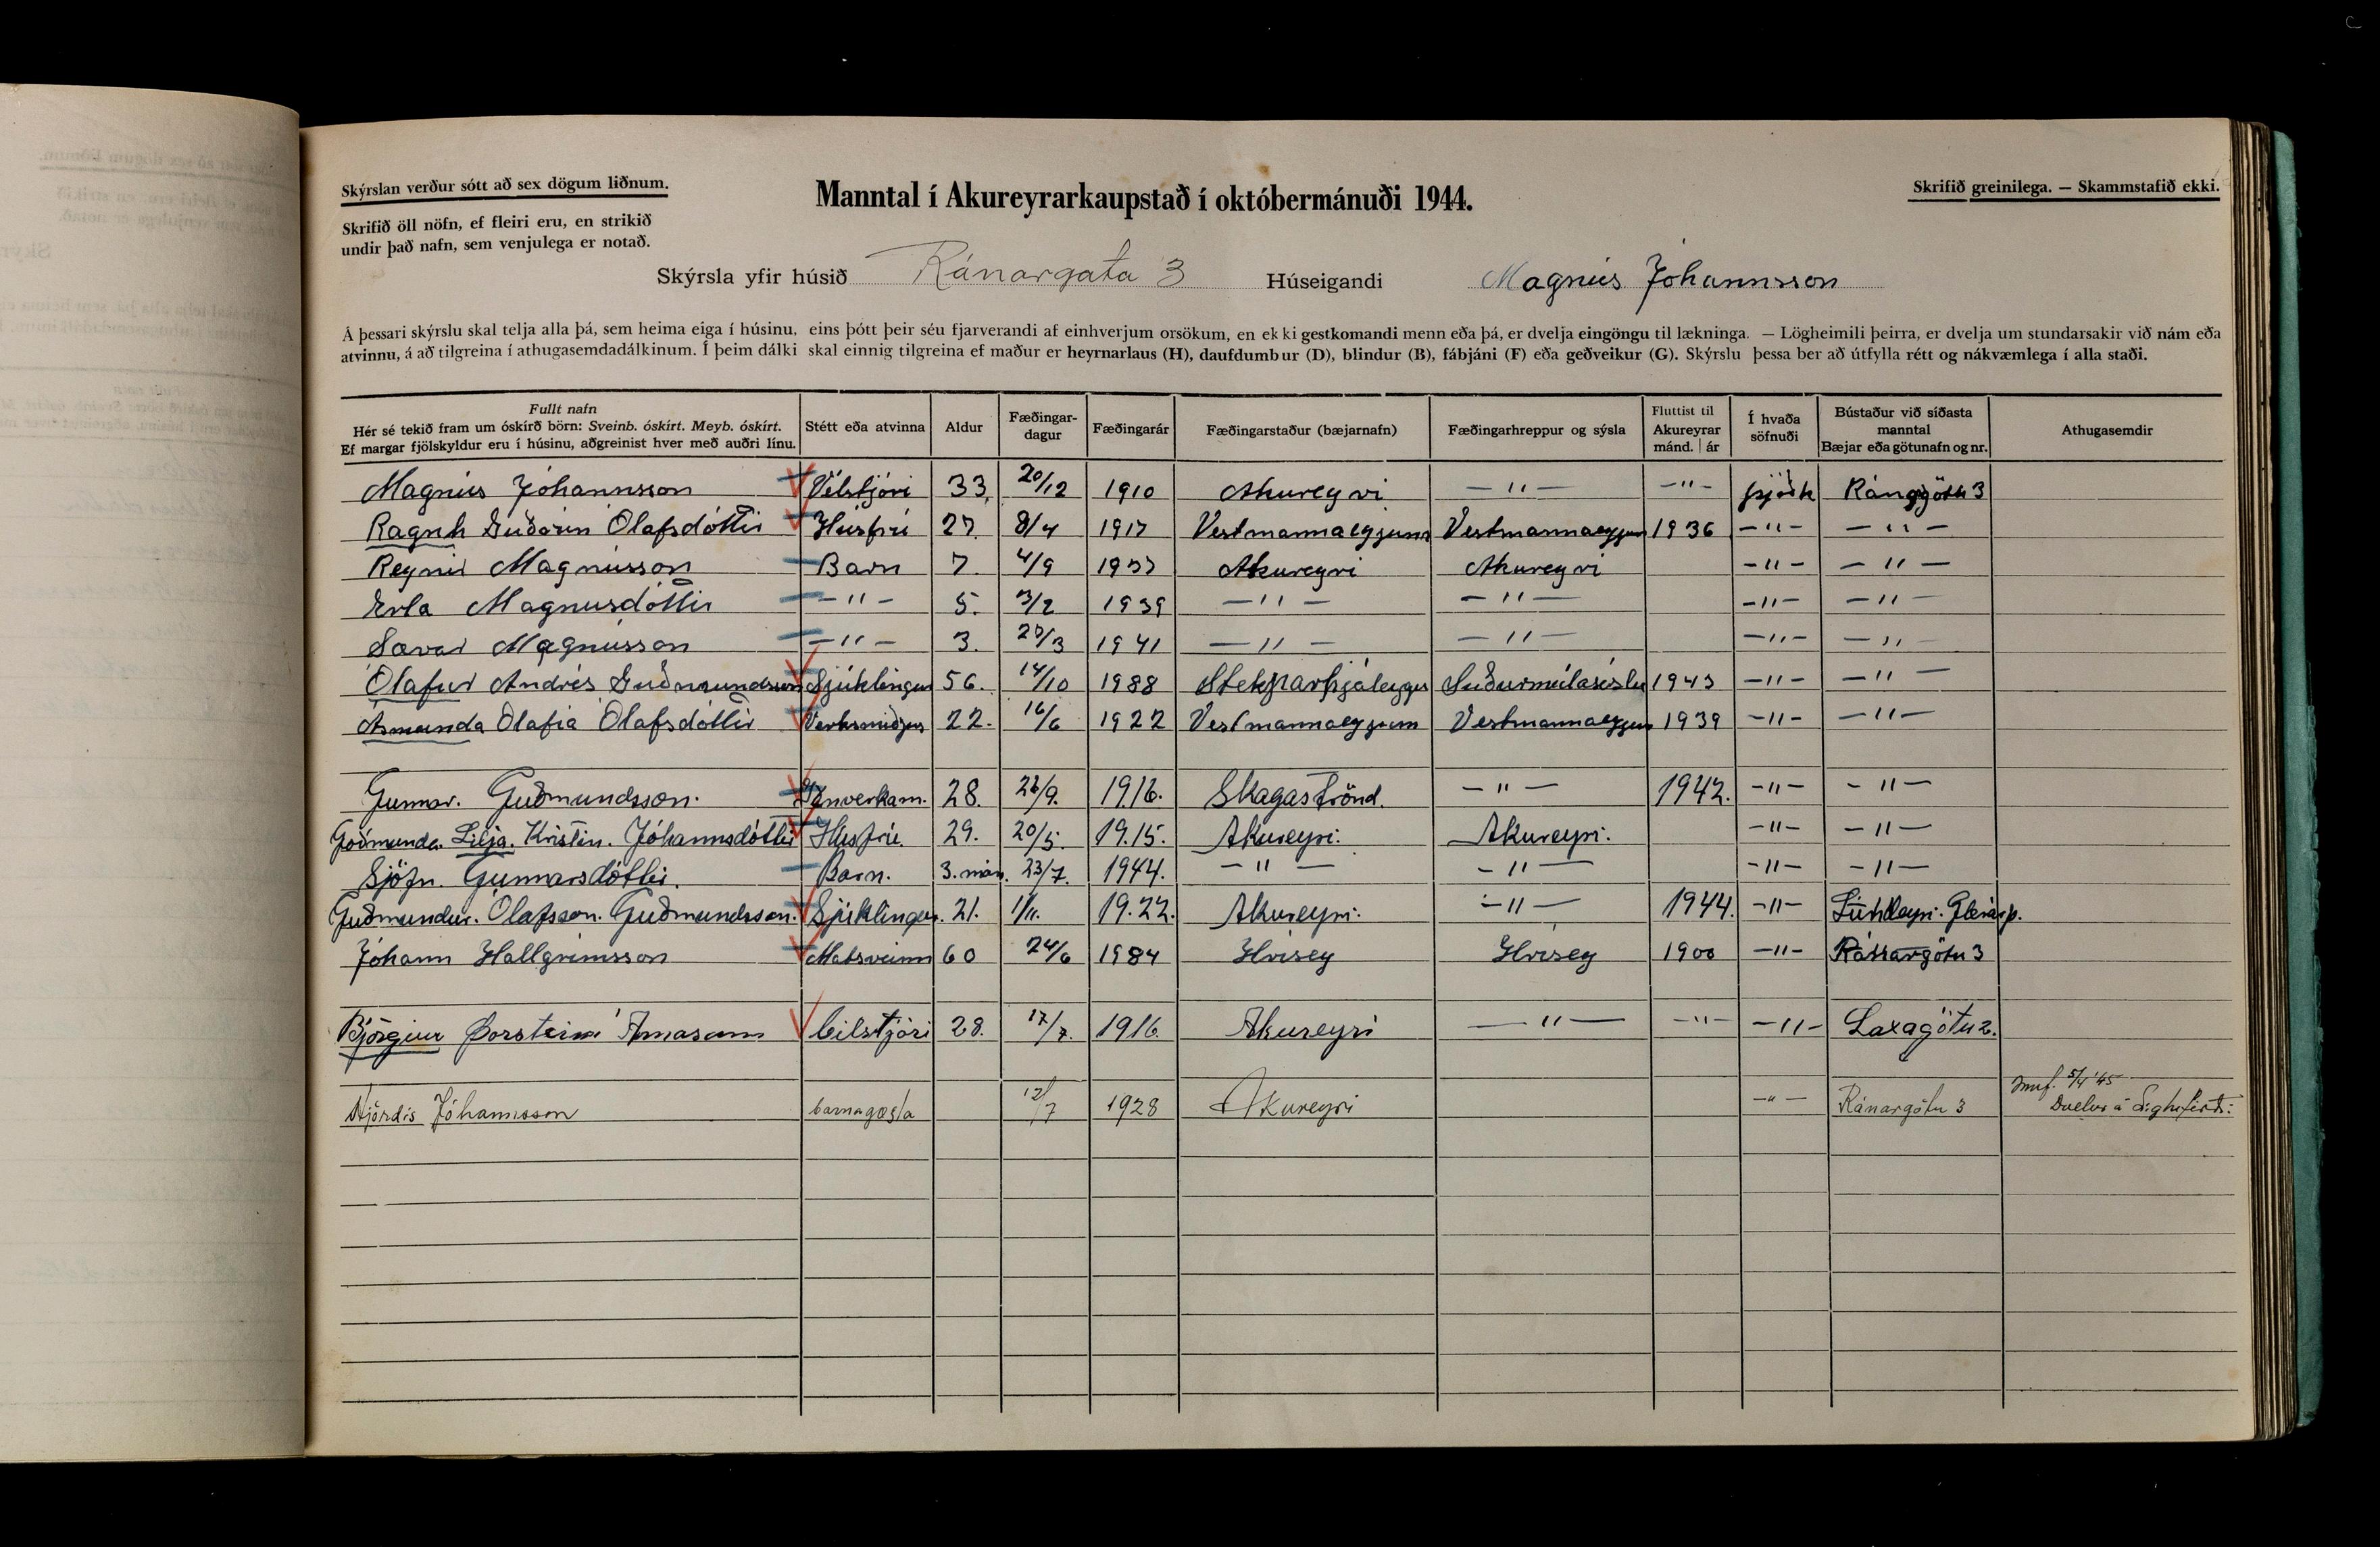 Skýrslan verður sótt að sex dögum liðnum.
Manntal í Akureyrarkaupstað í októbermánuði 1944.
Skrifið greinilega. — Skammstafið ekki.
Skrifið öll nöfn, ef fleiri eru, en strikið
undir það nafn, sem venjulega er notað.
Skýrsla yfir húsið Ránargata 3 Húseigandi Magnús Jóhannsson
Á þessari skýrslu skal telja alla þá, sem heima eiga í húsinu, eins þótt þeir séu fjarverandi af einhverjum orsökum, en ekki gestkomandi menn eða þá, er dvelja eingöngu til lækninga. — Lögheimili þeirra, er dvelja um stundarsakir við nám eða
atvinnu, á að tilgreina í athugasemdadálkinum. Í þeim dálki skal einnig tilgreina ef maður er heyrnarlaus (H), daufdumbur (D), blindur (B), fábjáni (F) eða geðveikur (G). Skýrslu þessa ber að útfylla rétt og nákvæmlega í alla staði.
Fullt nafn
Hér sé tekið fram um óskírð börn: Sveinb. óskírt. Meyb. óskírt.
Ef margar fjölskyldur eru í húsinu, aðgreinist hver með auðri línu.
Stétt eða atvinna
Aldur
Fæðingar-
dagur
Fæðingarár
Fæðingarstaður (bæjarnafn)
Fæðingarhreppur og sýsla
Fluttist til
Akureyrar
mánd. | ár
Í hvaða
söfnuði
Bústaður við síðasta
manntal
Bæjar eða götunafn og nr.
Athugasemdir
Magnús Jóhannsson Vélstjóri 33. 20/12 1910 Akureyri —"— —"— þjóðk
Ragnh Ólafsdóttir Húsfrú 27. 8/4 1917 Vestmannaeyjum Vestmannaeyjum 1936 —"— —"—
Reynir Magnússon Barn 7. 4/9 1937 Akureyri Akureyri —"— —"—
Erla Magnúsdóttir —"— 5. 3/2 1939 —"— —"— —"— —"—
Sævar Magnússon —"— 3. 3 1941 —"— —"— —"— —"—
Ólafur Andrés Guðmundsson Sjúklingur 56. 14/10 1988 Suðurmúlasýslu 1943 —"— —"—
Ásmunda Ólafía Ólafsdóttir 22. 16/6 1922 Vestmannaeyjum Vestmannaeyjum 1939 —"— —"—
Gunnar. Guðmundsson. 28. 26/9. 1916. Skagaströnd. —"— 1942. —"— —"—
Goðmunda. Lilja. Kristín. Jóhannsdóttir Húsfrú. 29. 20/5. 1915. Akureyri. Akureyri. —"— —"—
Sjöfn. Gunnarsdóttir. Barn. 3. mán. 23/7. 1944. —"— —"— —"— —"—
Guðmundur. Ólafsson. Guðmundsson. Sjúklingur. 21. 1/11. 19.22. Akureyri. —"— 1944. —"—
Jóhann Hallgrímsson Matsveinn 60 24/6 1984 Hrísey Hrísey 1900 —"— Ránargötu 3
Björgvin Þorsteinn bílstjóri 28. 17/7. 1916. Akureyri —"— —"— —"— Laxagötu 2.
Hjördís Jóhannsson barnagæsla 12/7 1928 Akureyri —"— Ránargötu 3
5/4 '45
Dvelur á Siglufirði